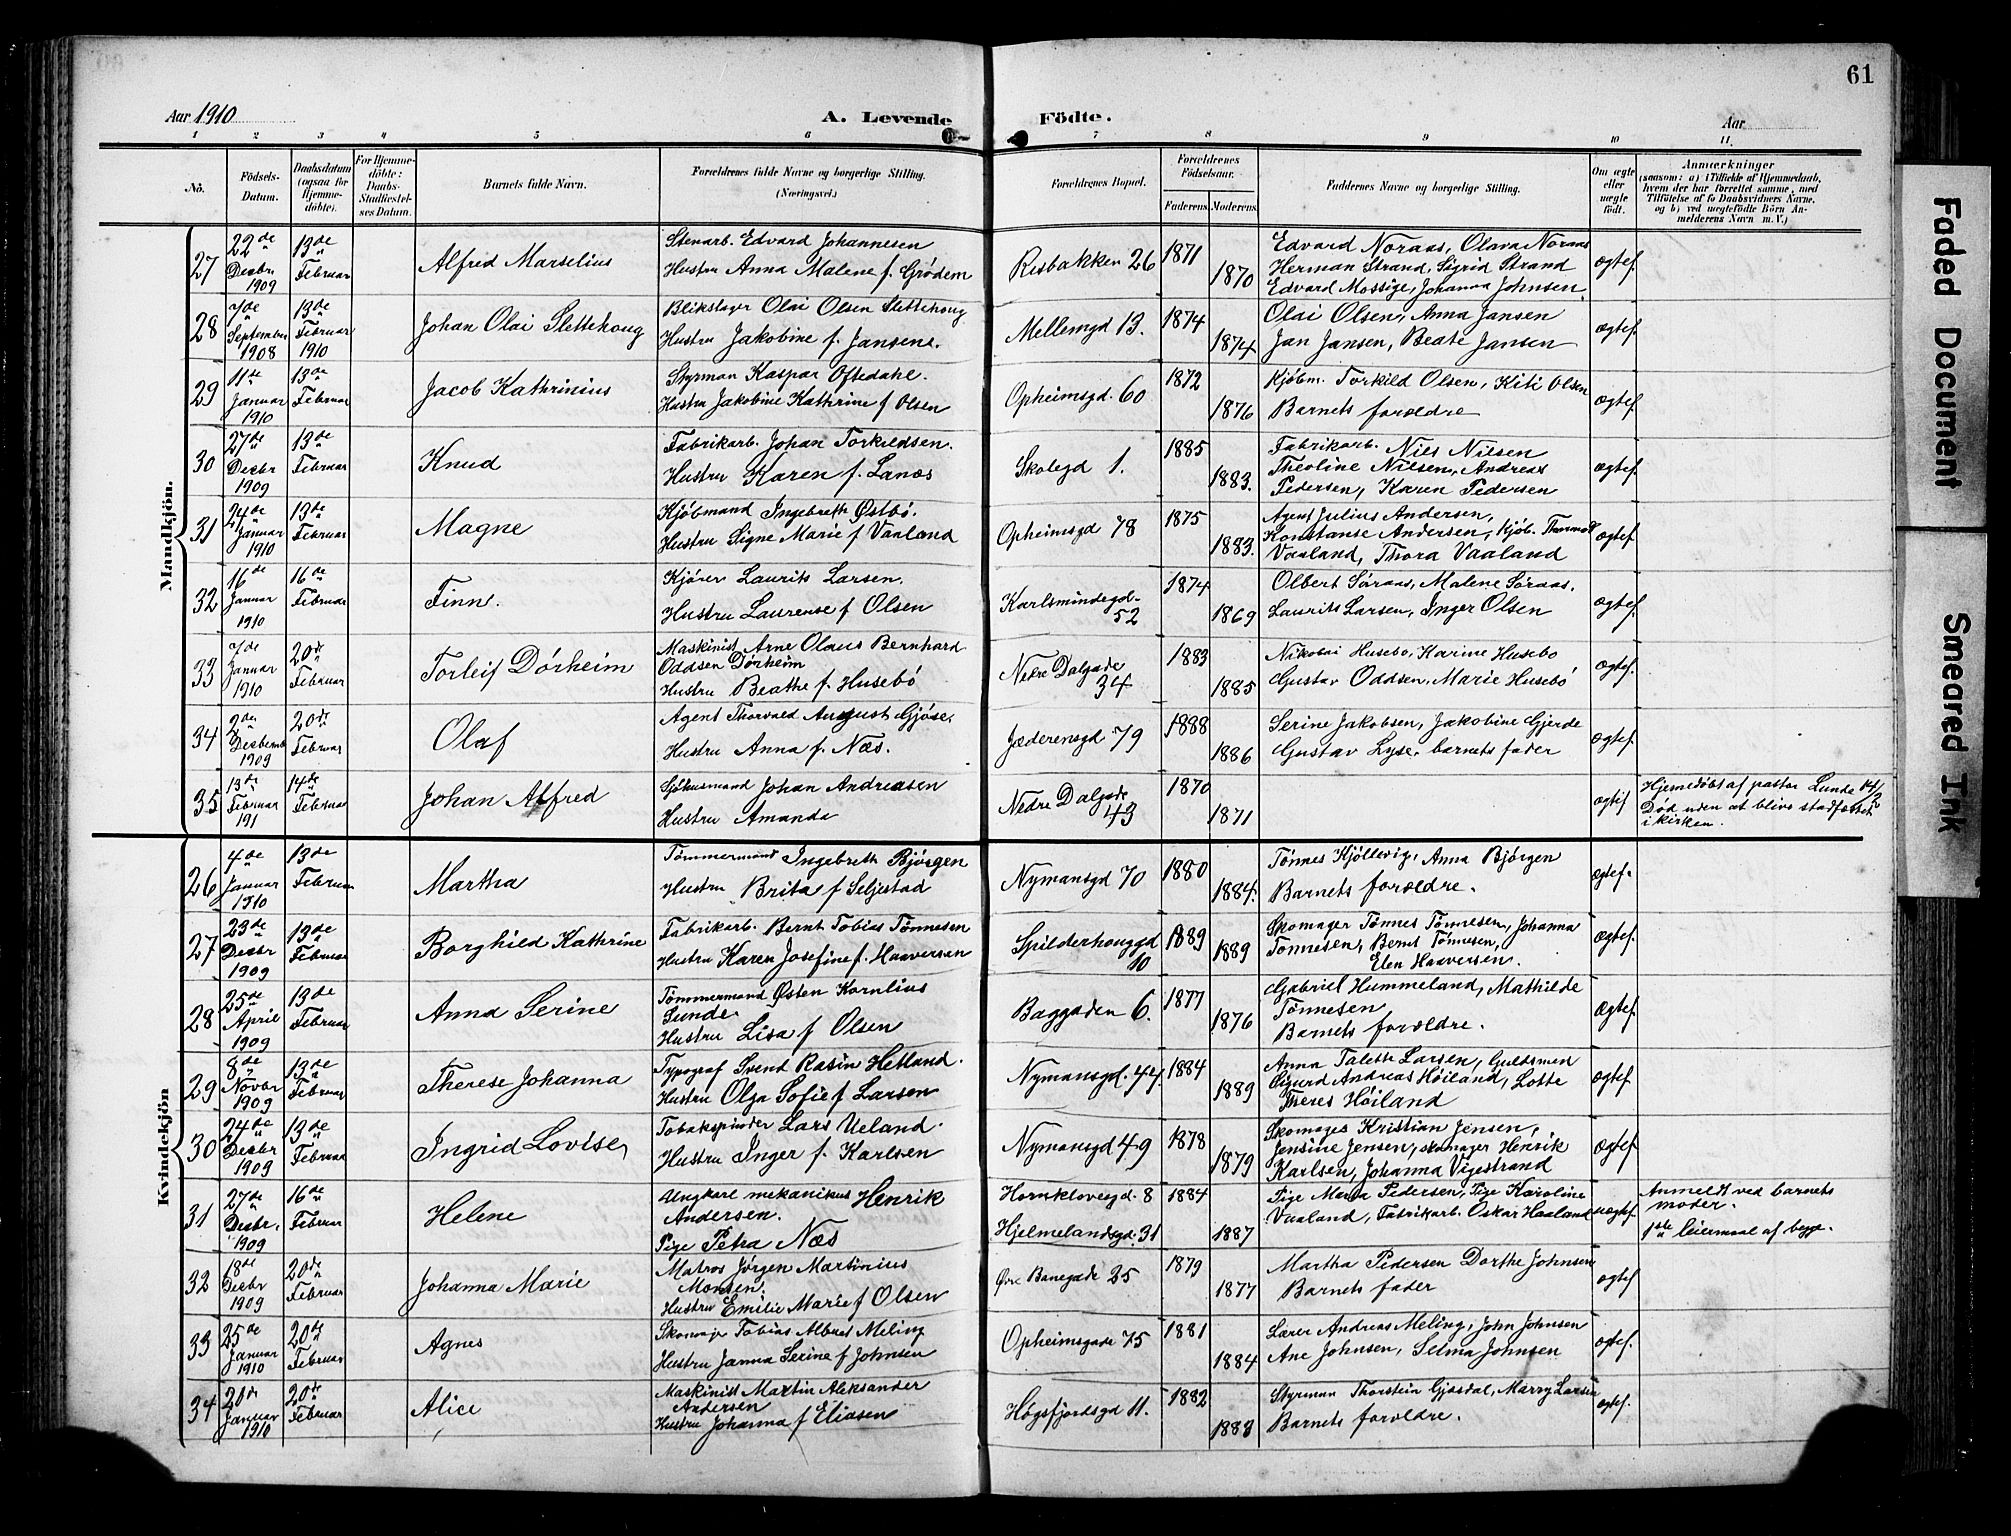 61
Aar 1910
A. Levende Födte.
Aar
1 2 3 4 5 6 7 8 9 10 11.
No.
Födsels-Datum.
Daabsdatum (ogsaa for Hjemme-döbte).
For Hjemme-döbte: Daabs-Stadfæstel-ses Datum.
Barnets fulde Navn.
Forældrenes fulde Navne og borgerlige Stilling. (Næringsvei.)
Forældrenes Bopæl.
Forældrenes Födselsaar.
Faderens. Moderens.
Faddernes Navne og borgerlige Stilling.
Om ægte eller uægte födt.
Anmærkninger
(saasom: a) i Tilfælde af Hjemmedaab, hvem der har forrettet samme, med Tilföielse af to Daabsvidners Navne. og b) ved uegtefödte Börn An-melderens Navn m. V.)
Mandkjön.
27 22de Desbr. 1909 13de Februar Alfred Marselius Stenarb. Edvard Johannesen
Hustru Anna Malene f. Grödem Risbakken 26 1871 1870 Edvard Noraas, Olava Noraas
Herman Strand, Sigrid Strand
Edvard Mossige, Johanna Johnsen. ægtef.
28 7de September 1908 13de Februar 1910 Johan Olai Slettehoug Blikslager Olai Olsen Slettehoug
Hustru Jakobine f. Jansens. Mellemgd 13. 1874 1874 Olai Olsen, Anna Jansen
Jan Jansen, Beate Jansen ægtef.
29 11te Januar 1910 13de Februar Jacob Kathrinius Styrman Kaspar Oftedahl.
Hustru Jakobine Kathrine f Olsen Opheimsgd. 60 1872 1876 Kjöbm. Torkild Olsen, Kiti Olsen
Barnets forældre ægtef.
30 27de Desbr 1909 13de Februar Knud Fabrikarb. Johan Torkildsen.
Hustru Karen f. Lanæs Skolegd 1. 1885 1883. Fabrikarb. Nils Nilsen
Theoline Nilsen, Andreas
Pedersen, Karen Pedersen ægtef.
31 24de Januar 1910 13de Februar Magne Kjöbmand Ingebreth Østbö.
Hustru Signe Marie f Vaaland Opheimsgd 78 1875 1883. Agent Julius Andersen,
Konstanse Andersen, Kjöb.
Vaaland, Thora Vaaland ægtef.
32 16de Januar 1910 16de Februar Finn. Kjörer Laurits Larsen.
Hustru Laurense f Olsen Karlsmindegd. 52 1874 1869 Olbert Söraas, Malene Söraas.
Laurits Larsen, Inger Olsen ægtef.
33 7de Januar 1910 20de Februar Torleif Dörheim Maskinist Arne Olaus Bernhard
Oddsen Dörheim
Hustru Beathe f. Husebö Nedre Dalgade 34 1883 1885 Nikolai Husebö, Karine Husebö
Gustav Oddsen, Marie Husebö ægtef.
34 2den Desbemb 1909 20de Februar Olaf Agent Thorvald August Gjöse.
Hustru Anna f. Næs. Jæderensgd 79 1888 1886 Serine Jakobsen, Jakobine Gjerde
Gustav Lyse, barnets fader ægtef.
35 13de Februar 191 14de Februar Johan Alfred Sjöhusmand Johan Andreasen
Hustru Amanda Nedre Dalgade 43 1870 1871 ægtef Hjemedöbt af pastor Lunde 14/2
Död uden at blive stadfæstet
i kirken.
Kvindekjön
26 4de Januar 1910 13de Februar Martha Tömmermand Ingebreth Björgen
Hustru Brita f Seljestad Nymansgd 70 1880 1884. Tönnes Kjöllevig, Anna Björgen
Barnets forældre. ægtef.
27 23de Desbr 1909 13de Februar Borghild Kathrine Fabrikarb. Bernt Tobias Tönnesen
Hustru Karen Josefine f. Haaversen Spilderhouggd 10 1889 1889 Skomager Tönnes Tönnesen, Johanna
Tönnesen, Bernt Tönnesen,
Elen Haaversen. ægtef.
28 25de April 1909 13de Februar Anna Serine Tömmermand Östen Kornlius
Sunde
Hustru Lisa f Olsen Baggaden 6. 1877 1876 Gabriel Hummeland, Mathilde
Tönnesen
Barnets forældre. ægtef.
29 8de Novbr 1909 13de Februar Therese Johanna Typograf Svend Rasin Hetland.
Hustru Olga Sofie f Larsen Nymansgd. 47. 1884 1889 Anna Talette Larsen, Guldsmed
Sigurd Andreas Höiland, Lotte
Theres Höiland ægtef
30 24de Desbr 1909 13de Februar Ingrid Lovise Tobakspinder Lars Ueland.
Hustru Inger f. Karlsen Nymansgd 49 1878 1879 Skomager Kristian Jensen,
Jensine Jensen, skomager Henrik
Karlsen, Johanna Vigestrand ægtef
31 27de Desbr. 1909 16de Februar Helene Ungkarl mekanikus Henrik
Andersen.
Pige Petra Næs Hornklovesgd. 8
Hjelmelandsgd. 31 1884 1887 Pige Marta Pedersen, Pige Karoline
Vaaland, Fabrikarb. Oskar Haaland uægtef Anmeldt ved barnets
moder.
1ste leiermaal af begge.
32 18de Desbr 1909 20de Februar Johanna Marie Matros Jörgen Martinius
Monsen.
Hustru Emilie Marie f Olsen Övre Banegade 25 1879 1877 Martha Pedersen Dorthe Johnsen
Barnets fader ægtef
33 25de Januar 1910 20de Februar Agnes Skomager Tobias Albert Meling
Hustru Janna Serine f Johnsen Opheimsgade 75 1881 1884 Lærer Andreas Meling, John Johnsen
Ane Johnsen, Selma Johnsen ægtef.
34 20de Januar 1910 20de Februar Alice Maskinist Martin Aleksander
Andersen
Hustru Johanna f Eliasen Högsfjordsgd 11. 1882 1883 Styrman Thorstein Gjösdal, Marry Larsen
Barnets forældre. ægtef.
Faded Document
Smeared Ink